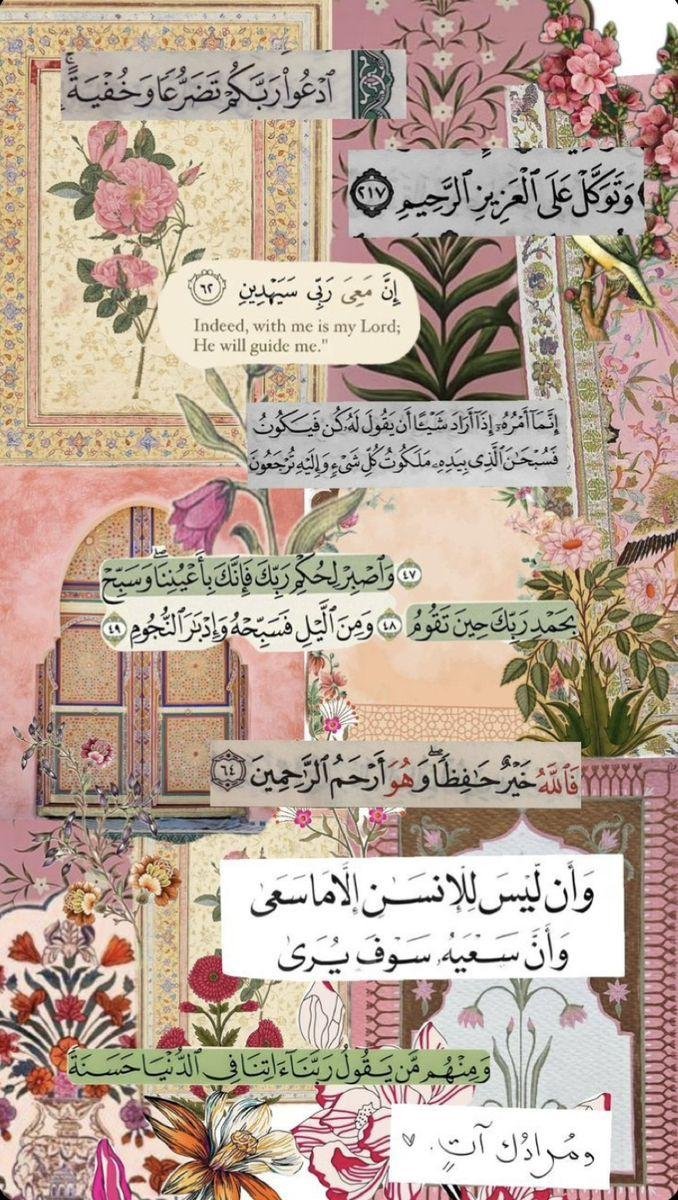 ٱدْعُوا۟ رَبَّكُمْ تَضَرُّعًا وَخُفْيَةً ۚ
وَتَوَكَّلْ عَلَى ٱلْعَزِيزِ ٱلرَّحِيمِ ٢١٧
إِنَّ مَعِىَ رَبِّى سَيَهْدِينِ ٦٢
Indeed, with me is my Lord;
He will guide me."
إِنَّمَآ أَمْرُهُۥٓ إِذَآ أَرَادَ شَيْـًٔا أَن يَقُولَ لَهُۥ كُن فَيَكُونُ
فَسُبْحَـٰنَ ٱلَّذِى بِيَدِهِۦ مَلَكُوتُ كُلِّ شَىْءٍ وَإِلَيْهِ تُرْجَعُونَ
٤٧ وَٱصْبِرْ لِحُكْمِ رَبِّكَ فَإِنَّكَ بِأَعْيُنِنَا ۖ وَسَبِّحْ
بِحَمْدِ رَبِّكَ حِينَ تَقُومُ ٤٨ وَمِنَ ٱلَّيْلِ فَسَبِّحْهُ وَإِدْبَـٰرَ ٱلنُّجُومِ ٤٩
فَٱللَّهُ خَيْرٌ حَـٰفِظًا ۖ وَهُوَ أَرْحَمُ ٱلرَّٰحِمِينَ ٦٤
وَأَن لَّيْسَ لِلْإِنسَـٰنِ إِلَّا مَا سَعَىٰ
وَأَنَّ سَعْيَهُۥ سَوْفَ يُرَىٰ
وَمِنْهُم مَّن يَقُولُ رَبَّنَآ ءَاتِنَا فِى ٱلدُّنْيَا حَسَنَةً
ومُرادُك آتٍ. ♡